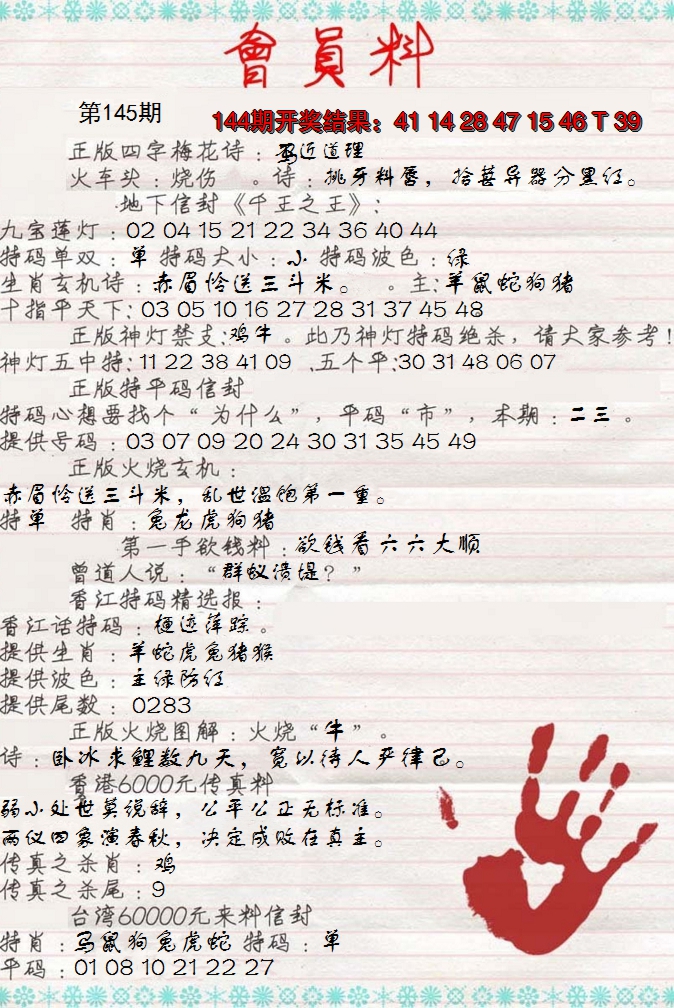 會員料
第145期
144期开奖结果：41 14 28 47 15 46 T 39
正版四字梅花诗：不近道理
火车头：烧伤 。诗：挑牙料唇，拾葚异器分黑红。
地下信封《千王之王》：
九宝莲灯：02 04 15 21 22 34 36 40 44
特码单双：单 特码大小：小 特码波色：绿
生肖玄机诗：赤眉怜送三斗米。 。主：羊鼠蛇狗猪
十指平天下：03 05 10 16 27 28 31 37 45 48
正版神灯禁支：鸡牛。此乃神灯特码绝杀，请大家参考！
神灯五中特：11 22 38 41 09 .五个平：30 31 48 06 07
正版特平码信封
特码心想要找个“为什么”，平码“市”，本期：二三 。
提供号码：03 07 09 20 24 30 31 35 45 49
正版火烧玄机：
赤眉怜送三斗米，乱世温饱第一重。
特单 特肖：兔龙虎狗猪
第一手欲钱料：欲钱看六六大顺
曾道人说：“群蚁溃堤？”
香江特码精选报：
香江话特码：梗迹萍踪。
提供生肖：羊蛇虎兔猪猴
提供波色：主绿防红
提供尾数：0283
正版火烧图解：火烧“牛”。
诗：卧冰求鲤数九天，宽以待人严律己。
香港6000元传真料
弱小处世莫说辞，公平公正无标准。
两仪四象演春秋，决定成败在真主。
传真之杀肖：鸡
传真之杀尾：9
台湾60000元来料信封
特肖：马鼠狗兔虎蛇 特码：单
平码：01 08 10 21 22 27